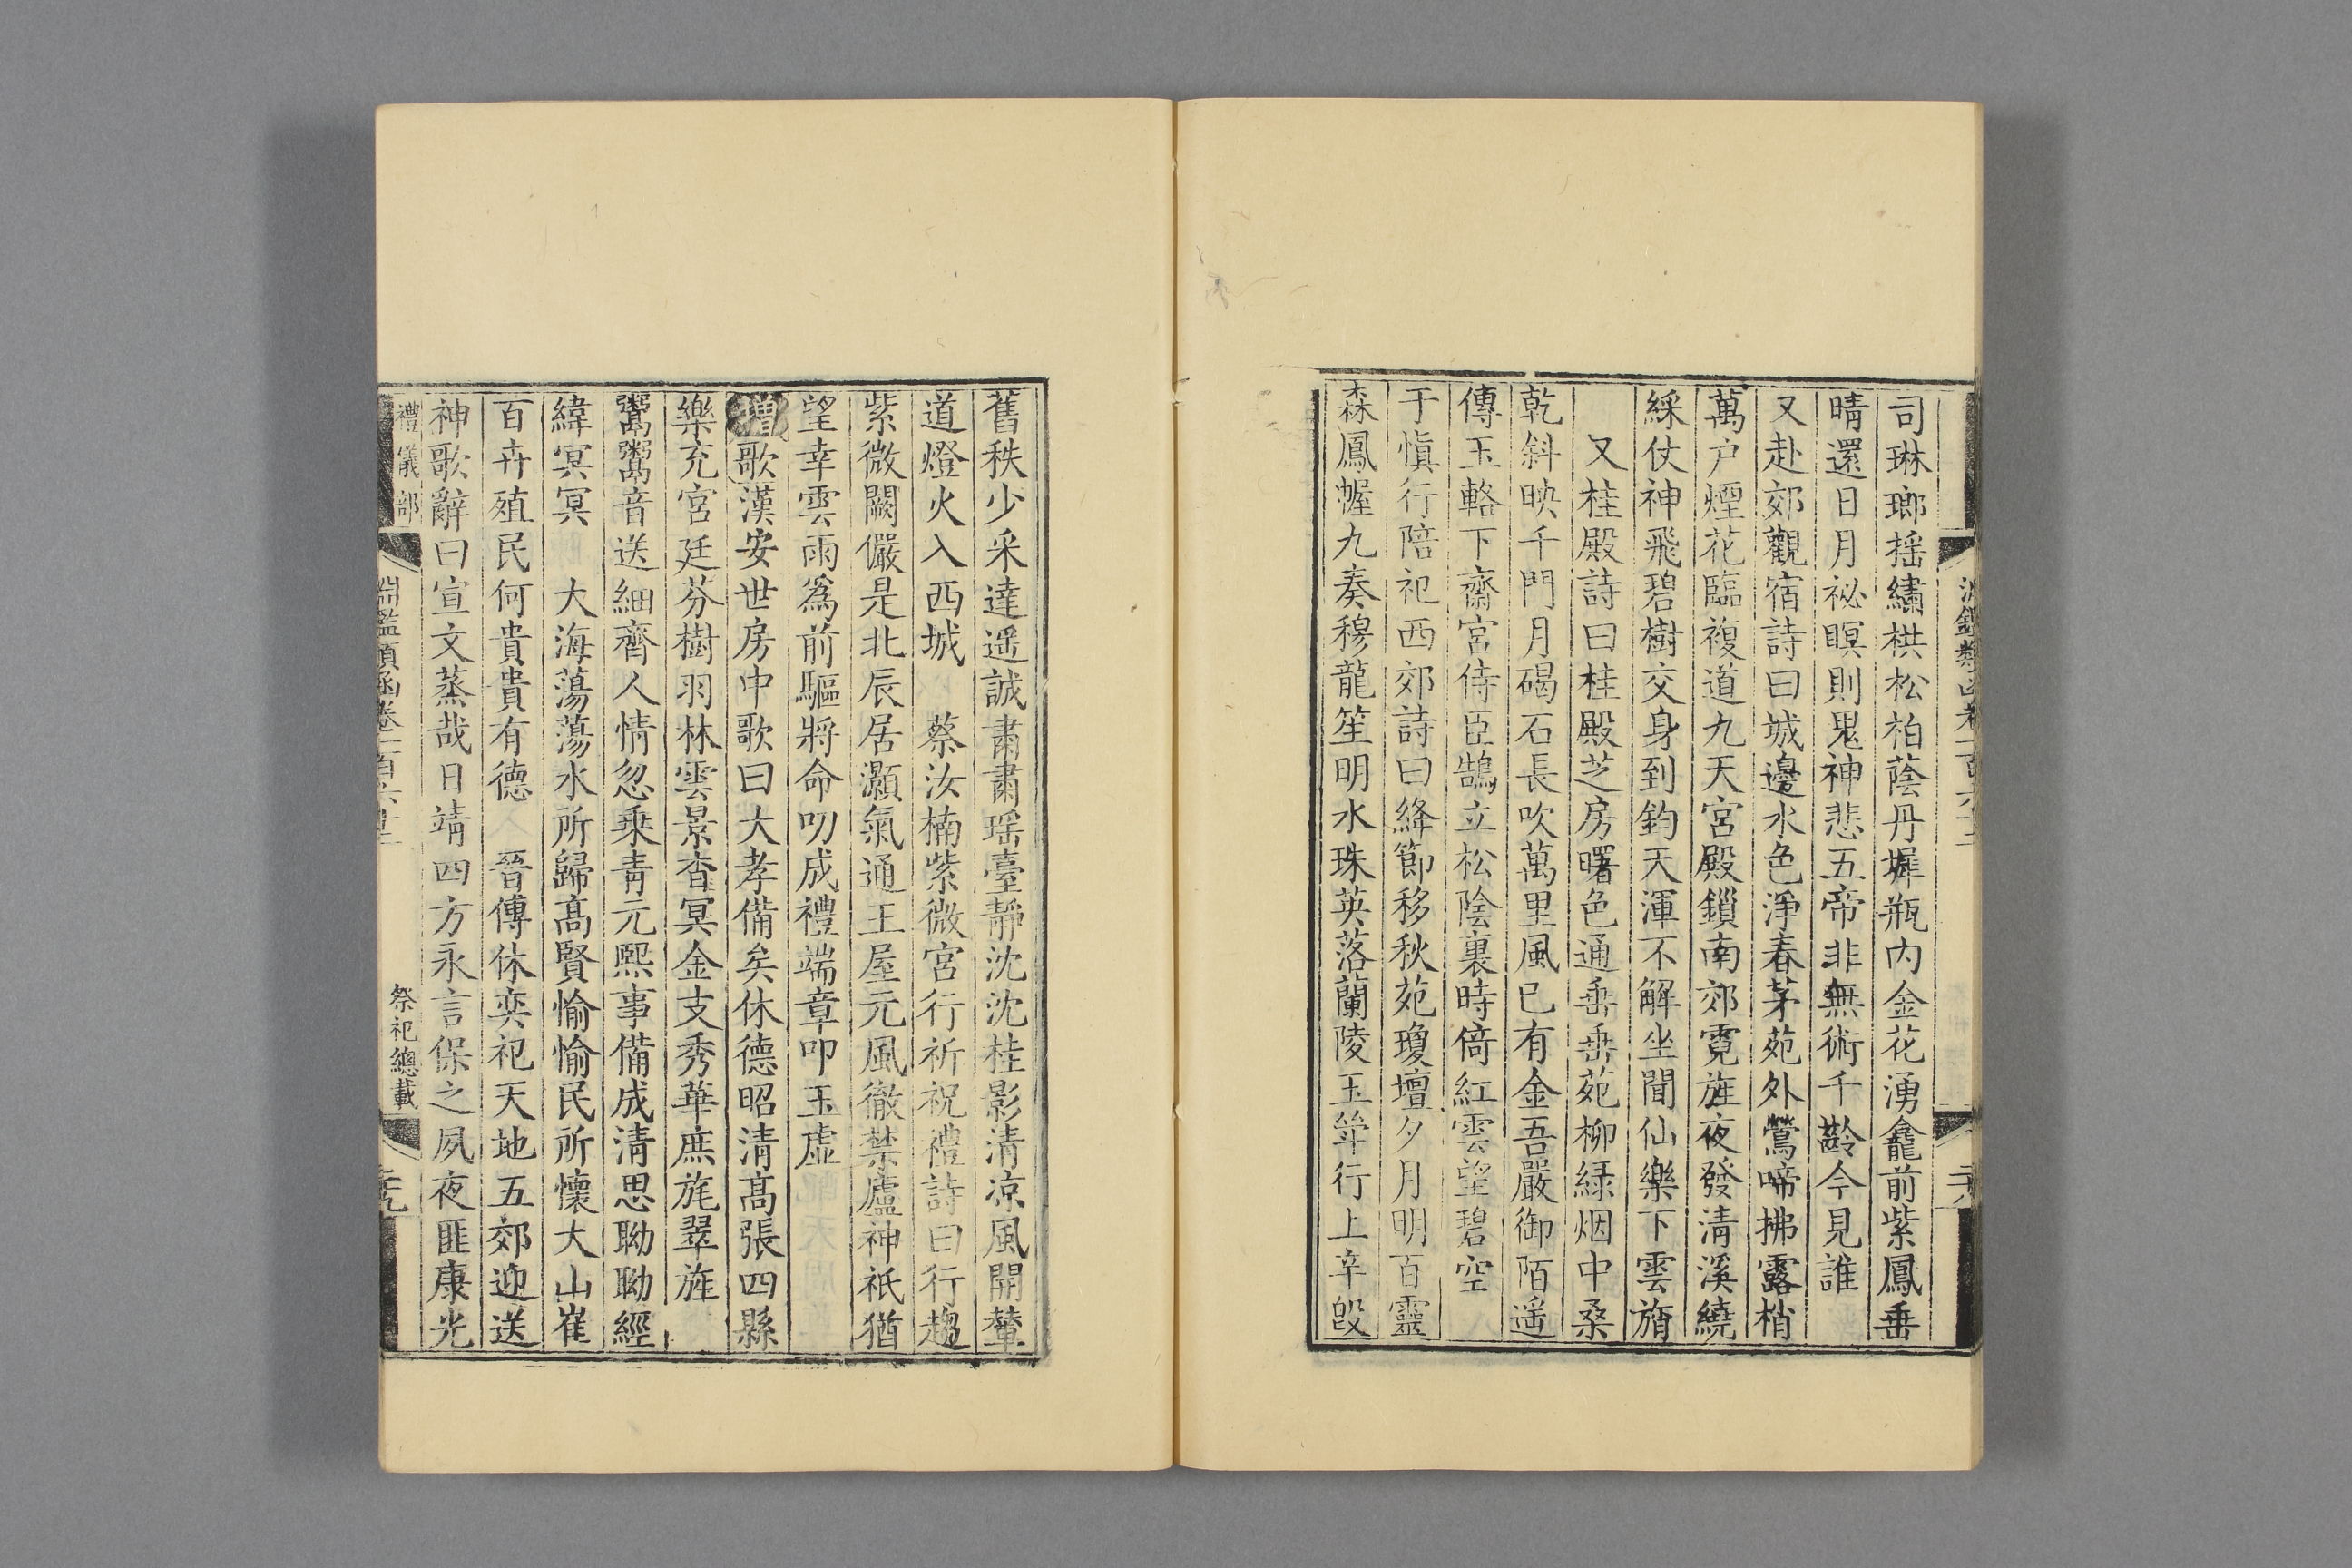 司琳瑯揺繡栱松柏蔭丹墀瓶内金花湧龕前紫鳳垂
晴還日月祕瞑則鬼神悲五帝非無術千齡今見誰
又赴郊觀宿詩曰城邊水色淨春茅苑外鶯啼拂露梢
萬户煙花臨複道九天宮殿鎖南郊霓旌夜發清溪繞
綵仗神飛碧樹交身到鈞天渾不解坐間仙樂下雲旓
又桂殿詩曰桂殿芝房曙色通垂垂苑柳緑烟中桑
乾斜映千門月碣石長吹萬里風已有金吾嚴御陌遥
傳玉輅下齋宮侍臣鵠立松陰裏時倚紅雲望碧空
于慎行陪祀西郊詩曰絳節移秋苑瓊壇夕月明百靈
森鳳幄九奏穆龍笙明水珠英落蘭陵玉斝行上辛毀
舊秩少采達遥誠肅肅瑶臺靜沈沈桂影清凉風開輦
道燈火入西城 蔡汝楠紫微宮行祈祝禮詩曰行趨
紫微闕儼是北辰居灝氣通王屋元風徹禁廬神祇猶
望幸雲雨爲前驅將命叨成禮端章叩玉虚
増歌漢安世房中歌曰大孝備矣休德昭清髙張四縣
樂充宮廷芬樹羽林雲景杳冥金支秀華庶旄翠旌
鬻鬻音送細齊人情忽乗青元熙事備成清思聭聭經
緯冥冥 大海蕩蕩水所歸髙賢愉愉民所懷大山崔
百卉殖民何貴貴有德 晉傅休奕祀天地五郊迎送
神歌辭曰宣文蒸哉日靖四方永言保之夙夜匪康光
禮儀部 淵鑑類函卷一百六十二 祭祀總載 二十九